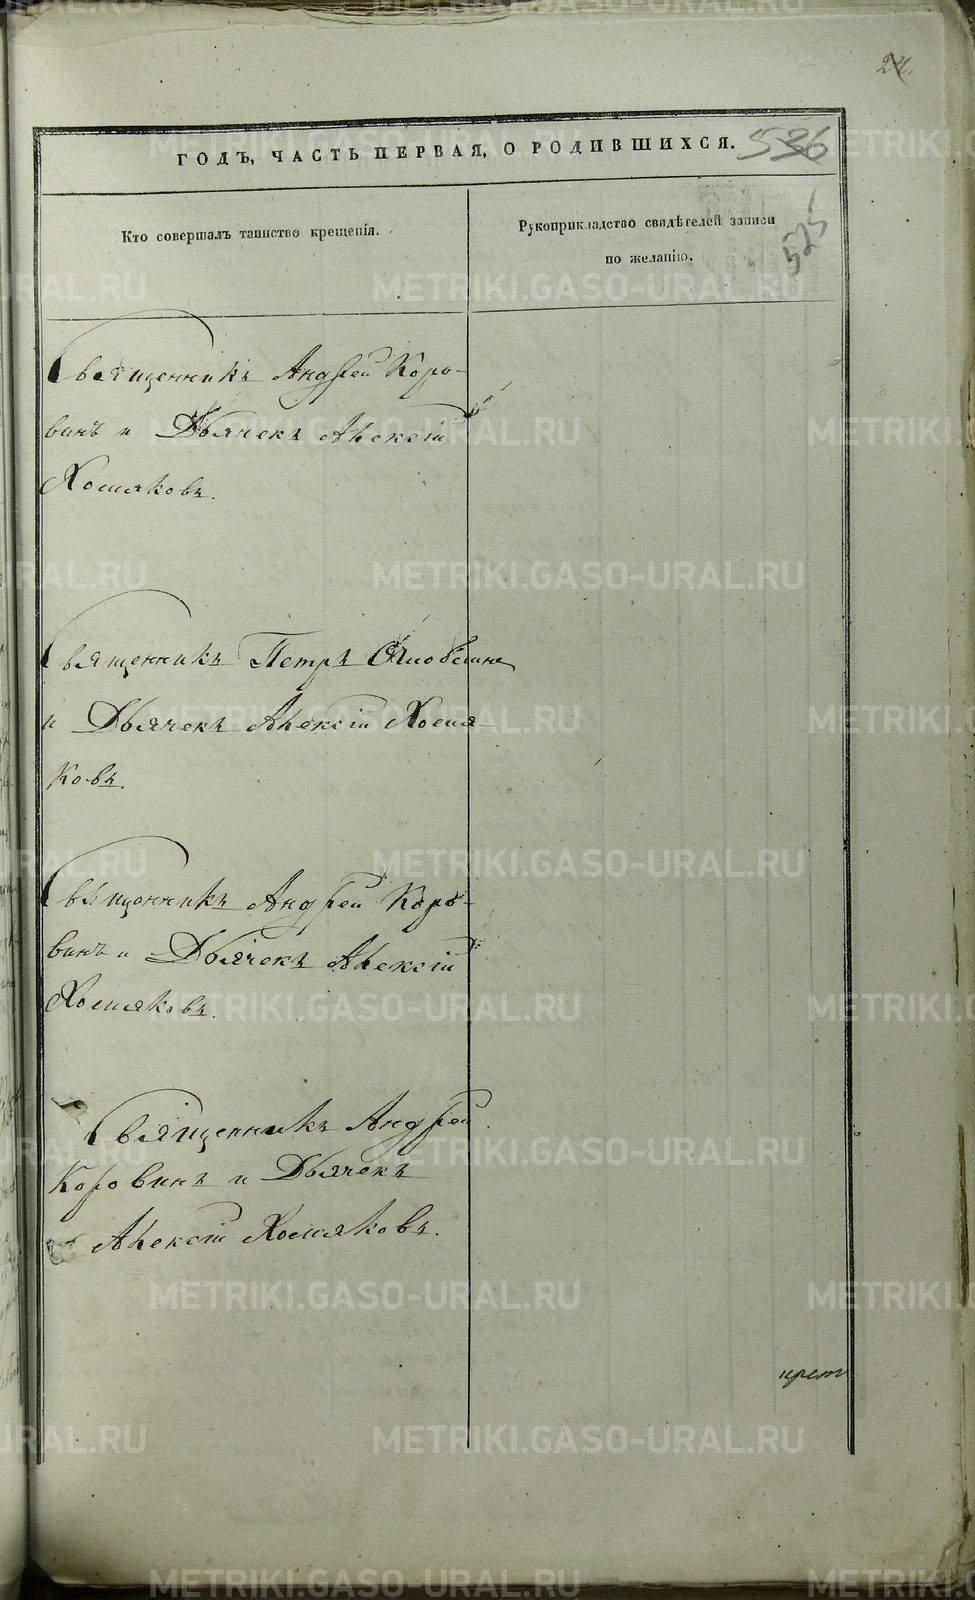 24
ГОДЪ, ЧАСТЬ ПЕРВАЯ, О РОДИВШИХСЯ. 526
Кто совершалъ таинство крещенія.
Рукоприкладство свидѣтелей записи
по желанію.
525
Священникъ Андрей Коро-
винъ и Дьячекъ Алексій
Хомяковъ.
Священникъ Петръ
и Дьячекъ Алексій Хомя-
ковъ.
Священникъ Андрей Коро-
винъ и Дьячекъ Алексій
Хомяковъ.
Священникъ Андрей
Коровинъ и Дьячекъ
Алексій Хомяковъ.
METRIKI.GASO-URAL.RU